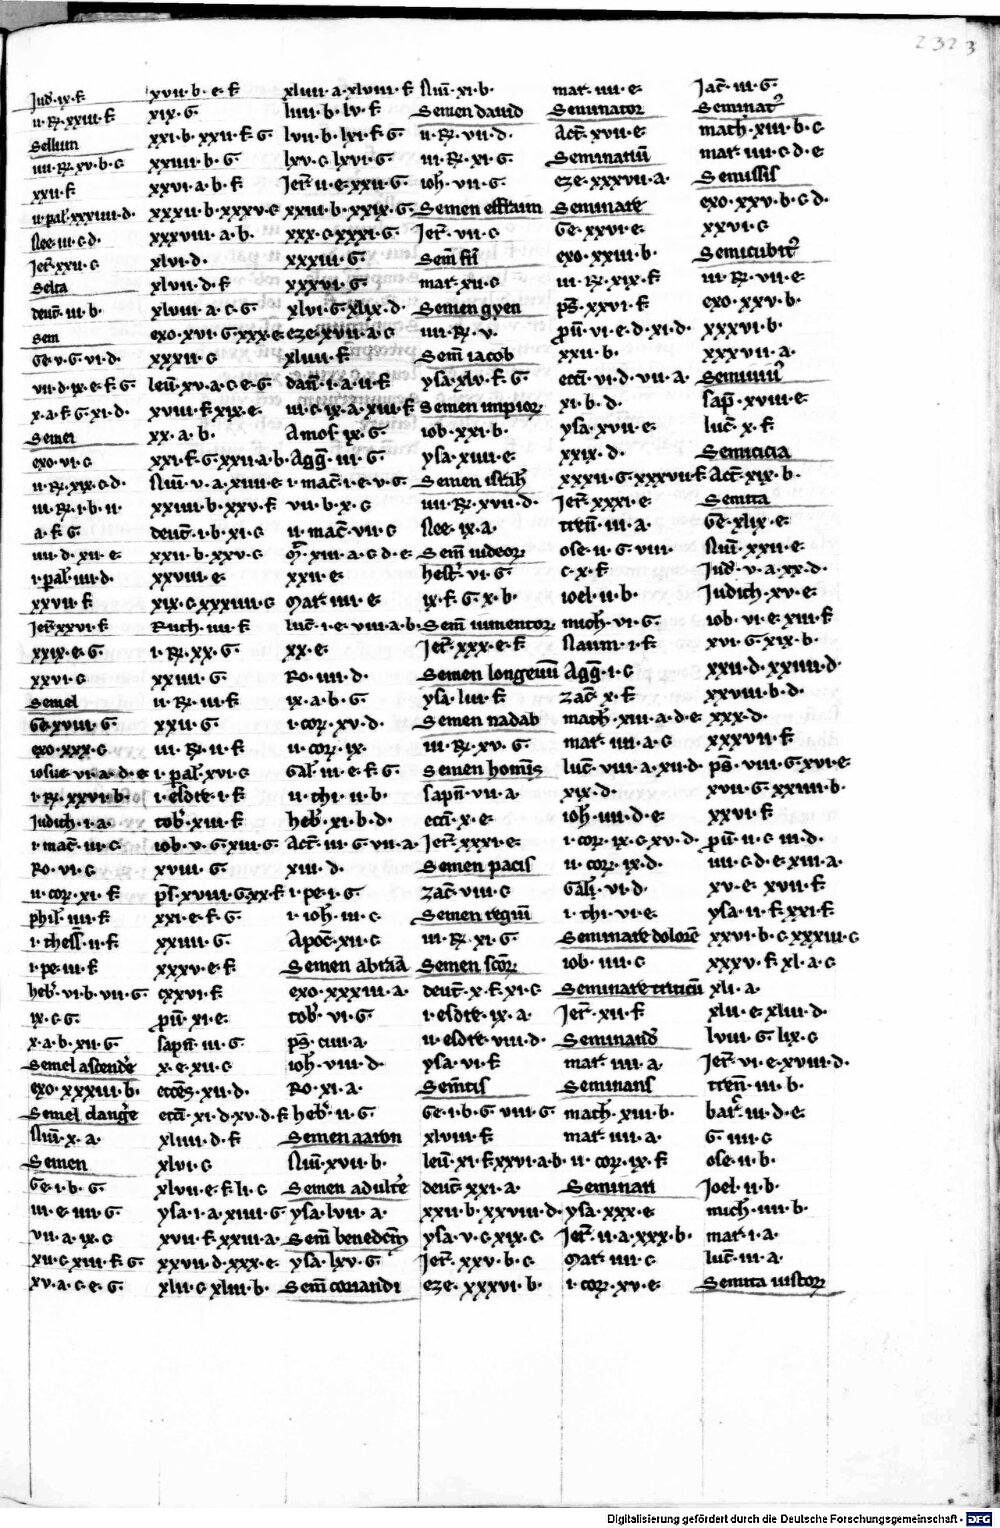 2323
Jud̄·ix·f
ii·R·xxiii·f
Sellum
iiii·R·xv·b·c
xxii·f
ii·pal̄·xxxiiii·d·
Nee·iii·c·d·
Jer̄·xxii·c
Selta
deut̄·iii·b·
Sem
Ge·v·G·vi·d·
vii·d·ix·e·f·G
x·a·f·G·xi·d·
Semei
exo·vi·c
ii·R·xix·c·d·
iii·R·i·b·ii·
a·f·G·
iiii·d·xii·e·
i·pal̄·iiii·d·
xxvii·f
Jer̄·xxvi·f
xxix·e·G
xxvi·c
Semel
Ge·xviii·G
exo·xxx·c
iosue·vi·a·d·e
i·R·xxvi·b·
Judich·i·a·
i·mac̄·iii·c
Ro·vi·c
ii·cor·xi·f
phil̄·iiii·f
i·thess̄·ii·f
i·pe·iii·f
heb̄·vi·b·vii·G
ix·c·G
x·a·b·xii·G
Semel ascende
exo·xxxiii·b·
Semel clanḡe
Nū·x·a·
Semen
Ge·i·b·G
iii·e·iiii·G
vii·a·ix·c
xii·c·xiii·f·G
xv·a·c·e·G
xvii·b·e·f
xix·G
xxi·b·xxii·f·G
xxiiii·b·G
xxvi·a·b·f
xxxii·b·xxxv·c
xxxviii·a·b·
xlvi·d·
xlvii·d·f
xlviii·a·c·G
exo·xvi·G·xxx·e
xxxii·c
leū·xv·a·c·e·G
xviii·f·xix·e·
xx·a·b·
xxi·f·G·xxii·a·b
Nū·v·a·xiiii·e
xxiiii·b·xxv·f
deut̄·i·b·xi·c
xxii·b·xxv·c
xxviii·e
xix·c·xxxiiii·c
Ruth·iiii·f
i·R·xx·G
xxiiii·G
ii·R·iii·f
xxii·G
iii·R·ii·f
i·pal̄·xvi·c
i·esdre·i·f
tob̄·xiii·f
iob·v·G·xiii·G
xviii·G
ps̄·xviii·G·xx·f
xxi·e·f·G
xxiiii·G
xxxv·e·f
cxxvi·f
pū·xi·e
sapn̄·iii·G
x·e·xii·c
ecces̄·xii·d·
eccī·xi·d·xv·d·f
xliiii·d·f
xlvi·c
xlvii·e·f·li·c
ysa·i·a·xiiii·G
xvii·f·xxiii·a·
xxvii·d·xxx·e
xlii·c·xliii·b·
xliiii·a·xlviii·f
liiii·b·lv·f
lvii·b·lxi·f·G
lxv·c·lxvi·G
Jer̄·ii·e·xxii·G
xxiii·b·xxix·G
xxx·c·xxxi·G
xxxiii·G
xxxvi·G
xlvi·G·xlix·d·
eze·xvii·a·c
xliiii·f
dan̄·i·a·ii·f
iii·c·ix·a·xiii·f
Amos·ix·G
Agḡ·iii·G
i·mac̄·i·e·v·G
vii·b·x·c
ii·mac̄·vii·c
xiii·a·c·d·e
xxii·e
Mar·iiii·e
luc̄·i·e·viii·a·b
xx·e
Ro·iiii·d·
ix·a·b·G
i·cor·xv·d·
ii·cor·ix·
Gal̄·iii·e·f·G
ii·thi·ii·b·
heb̄·xi·b·d·
Act̄·iii·G·vii·a·
xiii·d·
i·pe·i·G
i·ioh̄·iii·c
Apoc̄·xii·c
Semen abraā
exo·xxxiii·a·
tob̄·vi·G
ps̄·ciii·a·
ioh̄·viii·d·
Ro·xi·a·
heb̄·ii·G
Semen aaron
Nū·xvii·b·
Semen adult̄e
ysa·lvii·a·
Sem̄ benedcōn
ysa·lxv·G
Sem̄ coriandi
Nū·xi·b·
Semen dauid
ii·R·vii·d·
iii·R·xi·G
ioh̄·vii·G
Semen effraim
Jer̄·vii·c
Sem̄ fri
mar·xii·c
Semen gyen
iiii·R·v·
Sem̄ iacob
ysa·xlv·f·G
Semen impior
iob·xxi·b·
ysa·xiiii·e
Semen isrl̄
iiii·R·xvii·d·
Nee·ix·a·
Sem̄ iudeor
hest̄·vi·G
ix·f·G·x·b·
Sem̄ iumentor
Jer̄·xxx·e·f
Semen longeuū
ysa·liii·f
Semen nadab
iii·R·xv·G
Semen homīs
sapn̄·vii·a·
eccī·x·e
Jer̄·xxxi·e
Semen pacis
zac̄·viii·c
Semen regiū
iii·R·xi·G
Semen scōr
deut̄·x·f·xi·c
i·esdre·ix·a·
ii·esdre·viii·d·
ysa·vi·f
Sem̄tis
Ge·i·b·G·viii·G
xlviii·f
leū·xi·f·xxvi·a·b
deut̄·xxi·a·
xxii·b·xxviii·d·
ysa·v·c·xix·c
Jer̄·xxv·b·c
eze·xxxvi·b·
mar·iiii·e
Seminator
Act̄·xvii·e
Seminariū
eze·xxxvii·a·
Seminare
Ge·xxvi·e
exo·xxiii·b·
iii·R·xix·f
ps̄·xxvi·f
pū·vi·e·d·xi·d·
xxii·b·
eccī·vi·d·vii·a·
xi·b·d·
ysa·xvii·e
xxix·d·
xxxii·G·xxxvii·f
Jer̄·xxxi·e
tren̄·iii·a·
ose·ii·G·viii·
c·x·f
ioel·ii·b·
mich·vi·G
Naum·i·f
Agḡ·i·c
zac̄·x·f
math·xiii·a·d·e
mar·iiii·a·c
luc̄·viii·a·xii·d·
xix·d·
ioh̄·iiii·d·e
i·cor·ix·c·xv·d·
ii·cor·ix·d·
Gal̄·vi·d·
i·thi·vi·e
Seminare dolorē
iob·iiii·c
Seminare triticū
Jer̄·xii·f
Seminand̄
mar·iiii·a
Seminans
math·xiii·b·
mar·iiii·a·
ii·cor·ix·f
Seminari
ysa·xxx·e
Jer̄·ii·a·xxx·b·
Mar·iiii·c
i·cor·xv·e
Jac̄·iii·G
Seminat̄
math·xiii·b·c
mar·iiii·c·d·e
Semissis
exo·xxv·b·c·d
xxvi·c
Semicubit̄
iii·R·vii·e
exo·xxv·b·
xxxvi·b·
xxxvii·a·
Semiuiuū
sap̄·xviii·e
luc̄·x·f
Semicicia
Act̄·xix·b·
Semita
Ge·xlix·e
Nū·xxii·e
Jud̄·v·a·xx·d·
Judich·xv·e
iob·vi·e·xiii·f
xvi·G·xix·b·
xxii·d·xxiiii·d·
xxviii·b·d·
xxx·d·
xxxvii·f
ps̄·viii·G·xvi·e
xvii·G·xxiiii·b·
xxvi·f
pū·ii·c·iii·d·
iiii·c·d·e·xiii·a·
xv·e·xvii·f
ysa·ii·f·xxi·f
xxvi·b·c·xxxiii·c
xxxv·f·xl·a·c
xli·a·
xlii·e·xliii·d·
lviii·G·lix·c
Jer̄·vi·e·xviii·d·
tren̄·iii·b·
bar̄·iii·d·e
G·iiii·c
ose·ii·b·
Joel·ii·b·
mich·iiii·b·
mat·i·a·
luc̄·iii·a·
Semita iustor
Digitalisierung gefördert durch die Deutsche Forschungsgemeinschaft - DFG